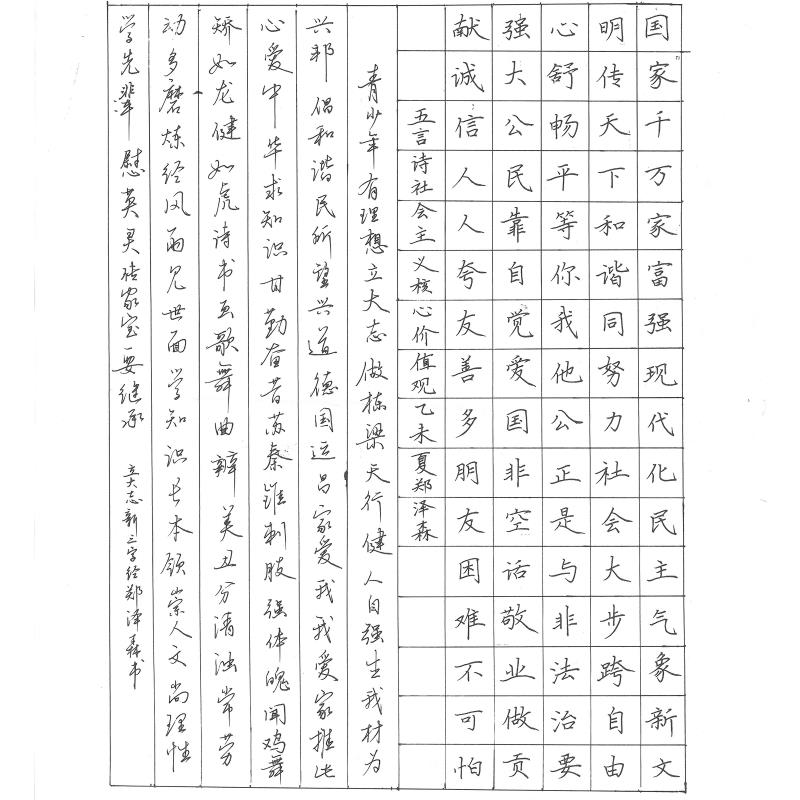 国家千万家富强现代化民主气象新文
明传天下和谐同努力社会大步跨自由
心舒畅平等你我他公正是与非法治要
强大公民靠自觉爱国非空话敬业做贡
献诚信人人夸友善多朋友困难不可怕
五言诗社会主义核心价值观乙未夏郑泽森
青少年有理想立大志做栋梁天行健人自强生我材为
兴邦倡和谐民所望兴道德国运昌家爱我我爱家推此
心爱中华求知识甘勤奋昔苏秦锥刺股强体魄闻鸡舞
矫如龙健如虎诗书画歌舞曲辨美丑分清浊常劳
动多磨炼经风雨见世面学知识长本领崇人文尚理性
学先辈慰英灵传家宝要继承 立大志新三字经郑泽森书